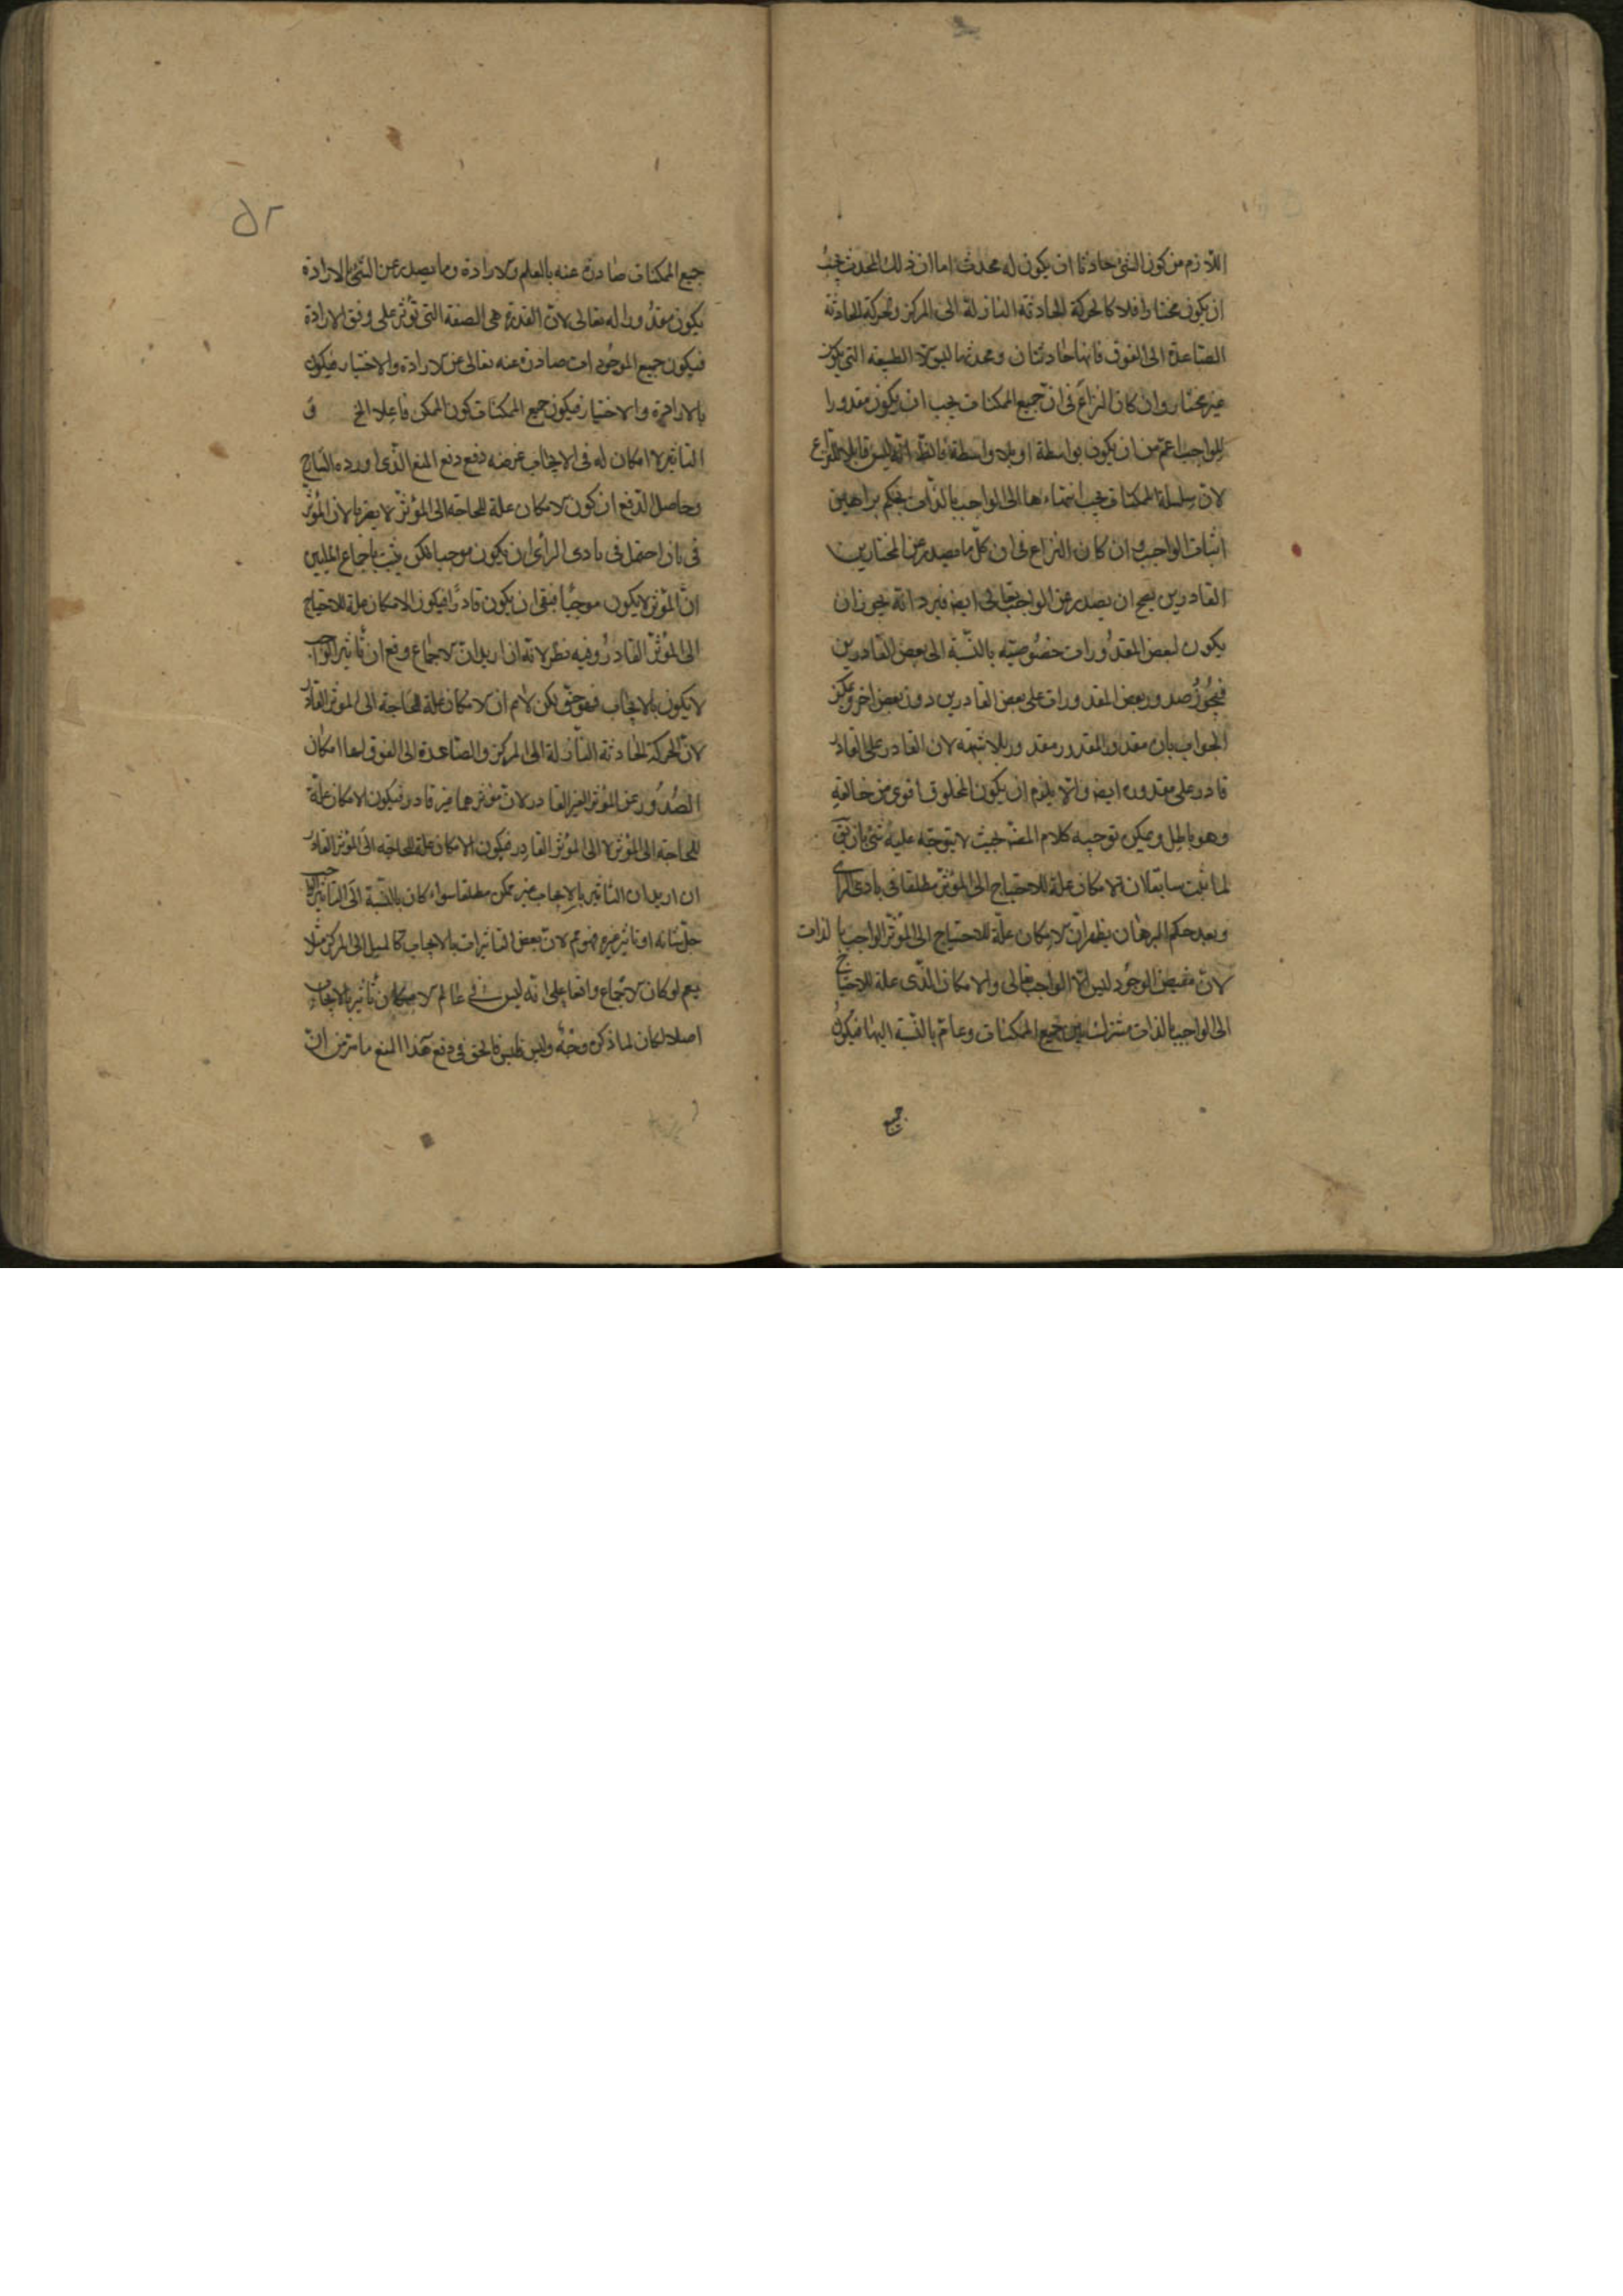 اللازم من كون الشئ حادثا ان يكون له محدث اما ان ذلك المحدث يجب
ان يكون مختارا فلا كالحركة الحادثة النازلة الى المركز والحركة الحادثة
الصاعدة الى الفوق فانها حادثتان ومحدثهما ليس الا الطبيعة التي يكون
غير مختار وان كان النزاع في ان جميع الممكنات يجب ان يكون مقدورا
للواجب اعم من ان يكون بواسطة او بلا واسطة فالظ انه ليس قابلا للنزاع
لان سلسلة الممكنات يجب انتهاءها الى الواجب بالذات بحكم براهين
اثبات الواجب و ان كان النزاع في ان كل ما يصدر عن المختارين
القادرين يصح ان يصدر عن الواجب تعالى ايضا فيرد انه يجوز ان
يكون لبعض المقدورات خصوصية بالنسبة الى بعض القادرين
فيجوز صدور بعض المقدورات على بعض القادرين دون بعض اخر ويمكن
الجواب بان مقدور المقدور مقدور بلا شبهه لان القادر على القادر
قادر على مقدوره ايضا والا يلزم ان يكون المخلوق اقوى من خالقه
وهو باطل ويمكن توجيه كلام المصنف بحيث لا يتوجه عليه شئ بان يق
لما ثبت سابقا ان الامكان علة للاحتياج الى المؤثر مطلقا في بادى الراى
وبعد حكم البرهان يظهر ان الامكان علة للاحتياج الى المؤثر الواجب بالذات
لان مفيض الوجود ليس الا الواجب تعالى والامكان الذى علة للاحتياج
الى الواجب بالذات مشترك بين جميع الممكنات وعام بالنسبة اليها فيكون
جميع
٥٢
جميع الممكنات صادرة عنه بالعلم والارادة وما يصدر عن الشئ بالارادة
يكون مقدورا له تعالى لان القدرة هى الصفة التي تؤثر على وفق الارادة
فيكون جميع الموجودات صادرة عنه تعالى عن الارادة والاختيار فيكون
بالارادة والاختيار فيكون جميع الممكنات كون الممكن فاعلا الخ
التاثير لا امكان له في الايجاب غرضه دفع دفع المنع الذى اورده الشارح
وحاصل الدفع ان كون الامكان علة للحاجة الى المؤثر لا يضرنا لان المؤثر
في بان احتمل في بادى الراى ان يكون موجبا لكن يثبت باجماع المليين
ان المؤثر لا يكون موجبا فبقى ان يكون قادرا فيكون الامكان علة للاحتياج
الى المؤثر القادر وفيه نظر لانه ان اريد ان الاجماع وقع ان تاثير الواجب
لا يكون بالايجاب فهو حق لكن لانم ان الامكان علة للحاجة الى المؤثر القادر
لان الحركة الحادثة النازلة الى المركز والصاعدة الى الفوق لها امكان
الصدور عن المؤثر الغير القادر لان مؤثرهما غير قادر فيكون الامكان علة
للحاجة الى المؤثر لا الى المؤثر القادر فيكون الامكان علة للحاجة الى المؤثر القادر
ان اريد ان التاثير بالايجاب غير ممكن مطلقا سواء كان بالنسبة الى التاثير الواجب
جل شانه او تاثير غيره فهو مم لان بعض التاثيرات بالايجاب كالميل الى المركز مثلا
نعم لو كان الاجماع واقعا على انه ليس في عالم الامكان تاثير بالايجاب
اصلا لكان لما ذكره وجه وليس فليس فالحق في دفع هذا المنع ما مر من ان